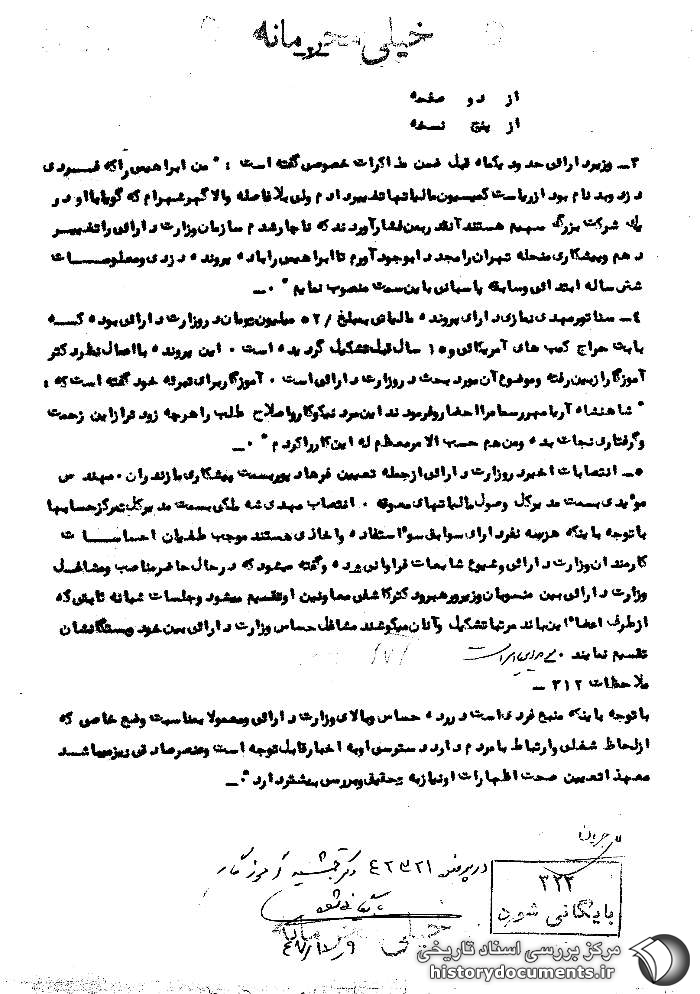 خیلی محرمانه
از دو صفحه
از پنج نسخه
۳ـ وزیر دارائی حدود یکماه قبل ضمن مذاکرات خصوصی گفته است : " من ابراهیمی راکه فردی
دزد و بدنام بود از ریاست کمیسیون مالیاتها تغییر دادم ولی بلافاصله والاگهر شهرام که گویا با او در
یک شرکت بزرگ سهیم هستند آنقدر بمن فشار آوردند که ناچار شدم سازمان وزارت دارائی را تغییر
دهم و پیشکاری منحله تهران را مجددا بوجود آورم تا ابراهیمی را با ده پرونده دزدی و معلومات
شش ساله ابتدائی و سابقه پاسبانی باین سمت منصوب نمایم " ۰ـ
۴ـ سناتور مهدی نمازی دارای پرونده مالیاتی بمبلغ /۵۲ میلیون تومان در وزارت دارائی بوده که
بابت حراج کمپ های آمریکائی و ۱۵ سال قبل تشکیل گردیده است ۰ این پرونده با اعمال نظر دکتر
آموزگار از بین رفته و موضوع آن مورد بحث در وزارت دارائی است ۰ آموزگار برای تبرئه خود گفته است که :
" شاهنشاه آریامهر رسما مرا احضار و فرمودند این مرد نیکوکار و اصلاح طلب را هرچه زودتر از این زحمت
و گرفتاری نجات بده و من هم حسب الامر معظم له این کار را کردم " ۰ـ
۵ـ انتصابات اخیر در وزارت دارائی از جمله تعیین فرهادپور بسمت پیشکاری مازندران ، مهندس
مویدی بسمت مدیرکل وصول مالیاتهای معوقه ، انتصاب مهدی شه ملکی بسمت مدیرکل تمرکز حسابها
با توجه باینکه هر سه نفر دارای سوابق سوء استفاده و اخاذی هستند موجب طغیان احساسات
کارمندان وزارت دارائی و شیوع شایعات فراوانی شده و گفته میشود که در حال حاضر مناصب و مشاغل
وزارت دارائی بین منسوبان وزیر و رهبر دکتر کاشفی معاونین او تقسیم میشود و جلسات شبانه ثابتی که
از طرف اعضاء این باند مرتبا تشکیل و آنان میکوشند مشاغل حساس وزارت دارائی بین خود و بستگانشان
تقسیم نمایند ۰
ملاحظات ۳۱۲ ـ
با توجه باینکه منبع فردی است در رده حساس و بالای وزارت دارائی و معمولا بمناسبت وضع خاصی که
از لحاظ شغلی و ارتباط با مردم دارد دسترسی او به اخبار قابل توجه است و عنصر صادقی نیز میباشد
معهذا تعیین صحت اظهارات او نیاز به تحقیق و بررسی بیشتر دارد " ۰ـ
در پرونده ۴۲۳۲۱ دکتر جمشید آموزگار
بایگانی شود
۳۲۲
بایگانی شود
خیلی محرمانه
مرکز بررسی اسناد تاریخی
historydocuments.ir